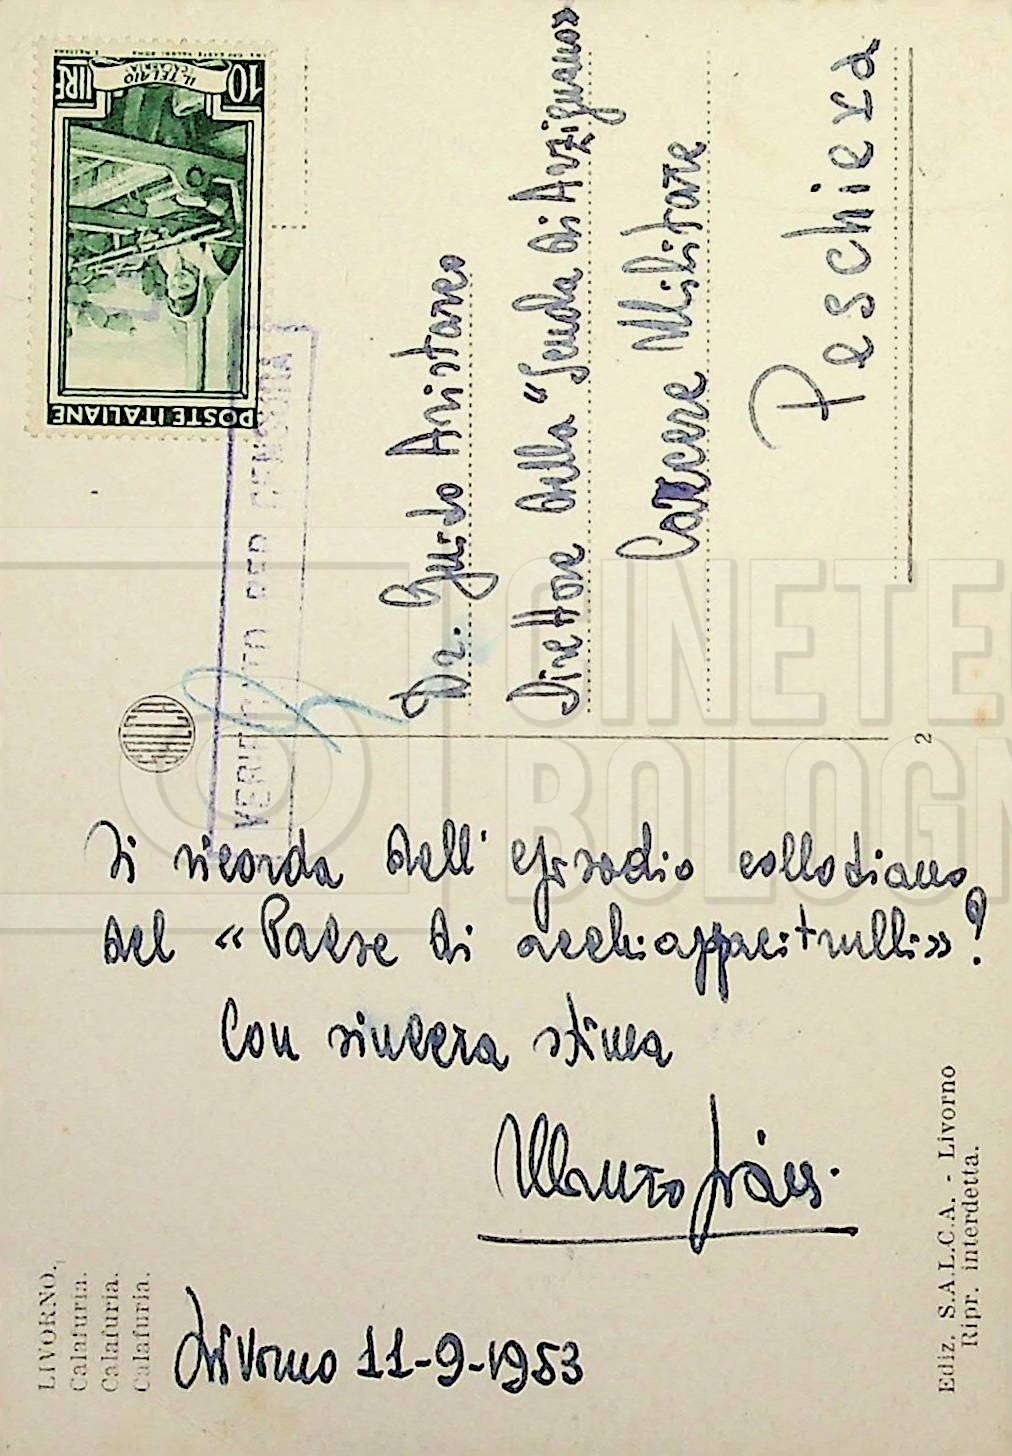 LIVORNO.
Calafuria.
Calafuria.
Calafuria.
Si ricorda dell'episodio collodiano
del «Paese di acchiappacitrulli»?
Con sincera stima
Mauro
Livorno 11-9-1953
Ediz. S.A.L.C.A. - Livorno
Ripr. interdetta.
SALCA
2
VERIFICATO PER CENSURA
POSTE ITALIANE
10 LIRE
IL TELAIO
Dr. Guido Aristarco
Direttore della "Scuola di Arzignano»
Carcere Militare
Peschiera
CINETE
BOLOGN